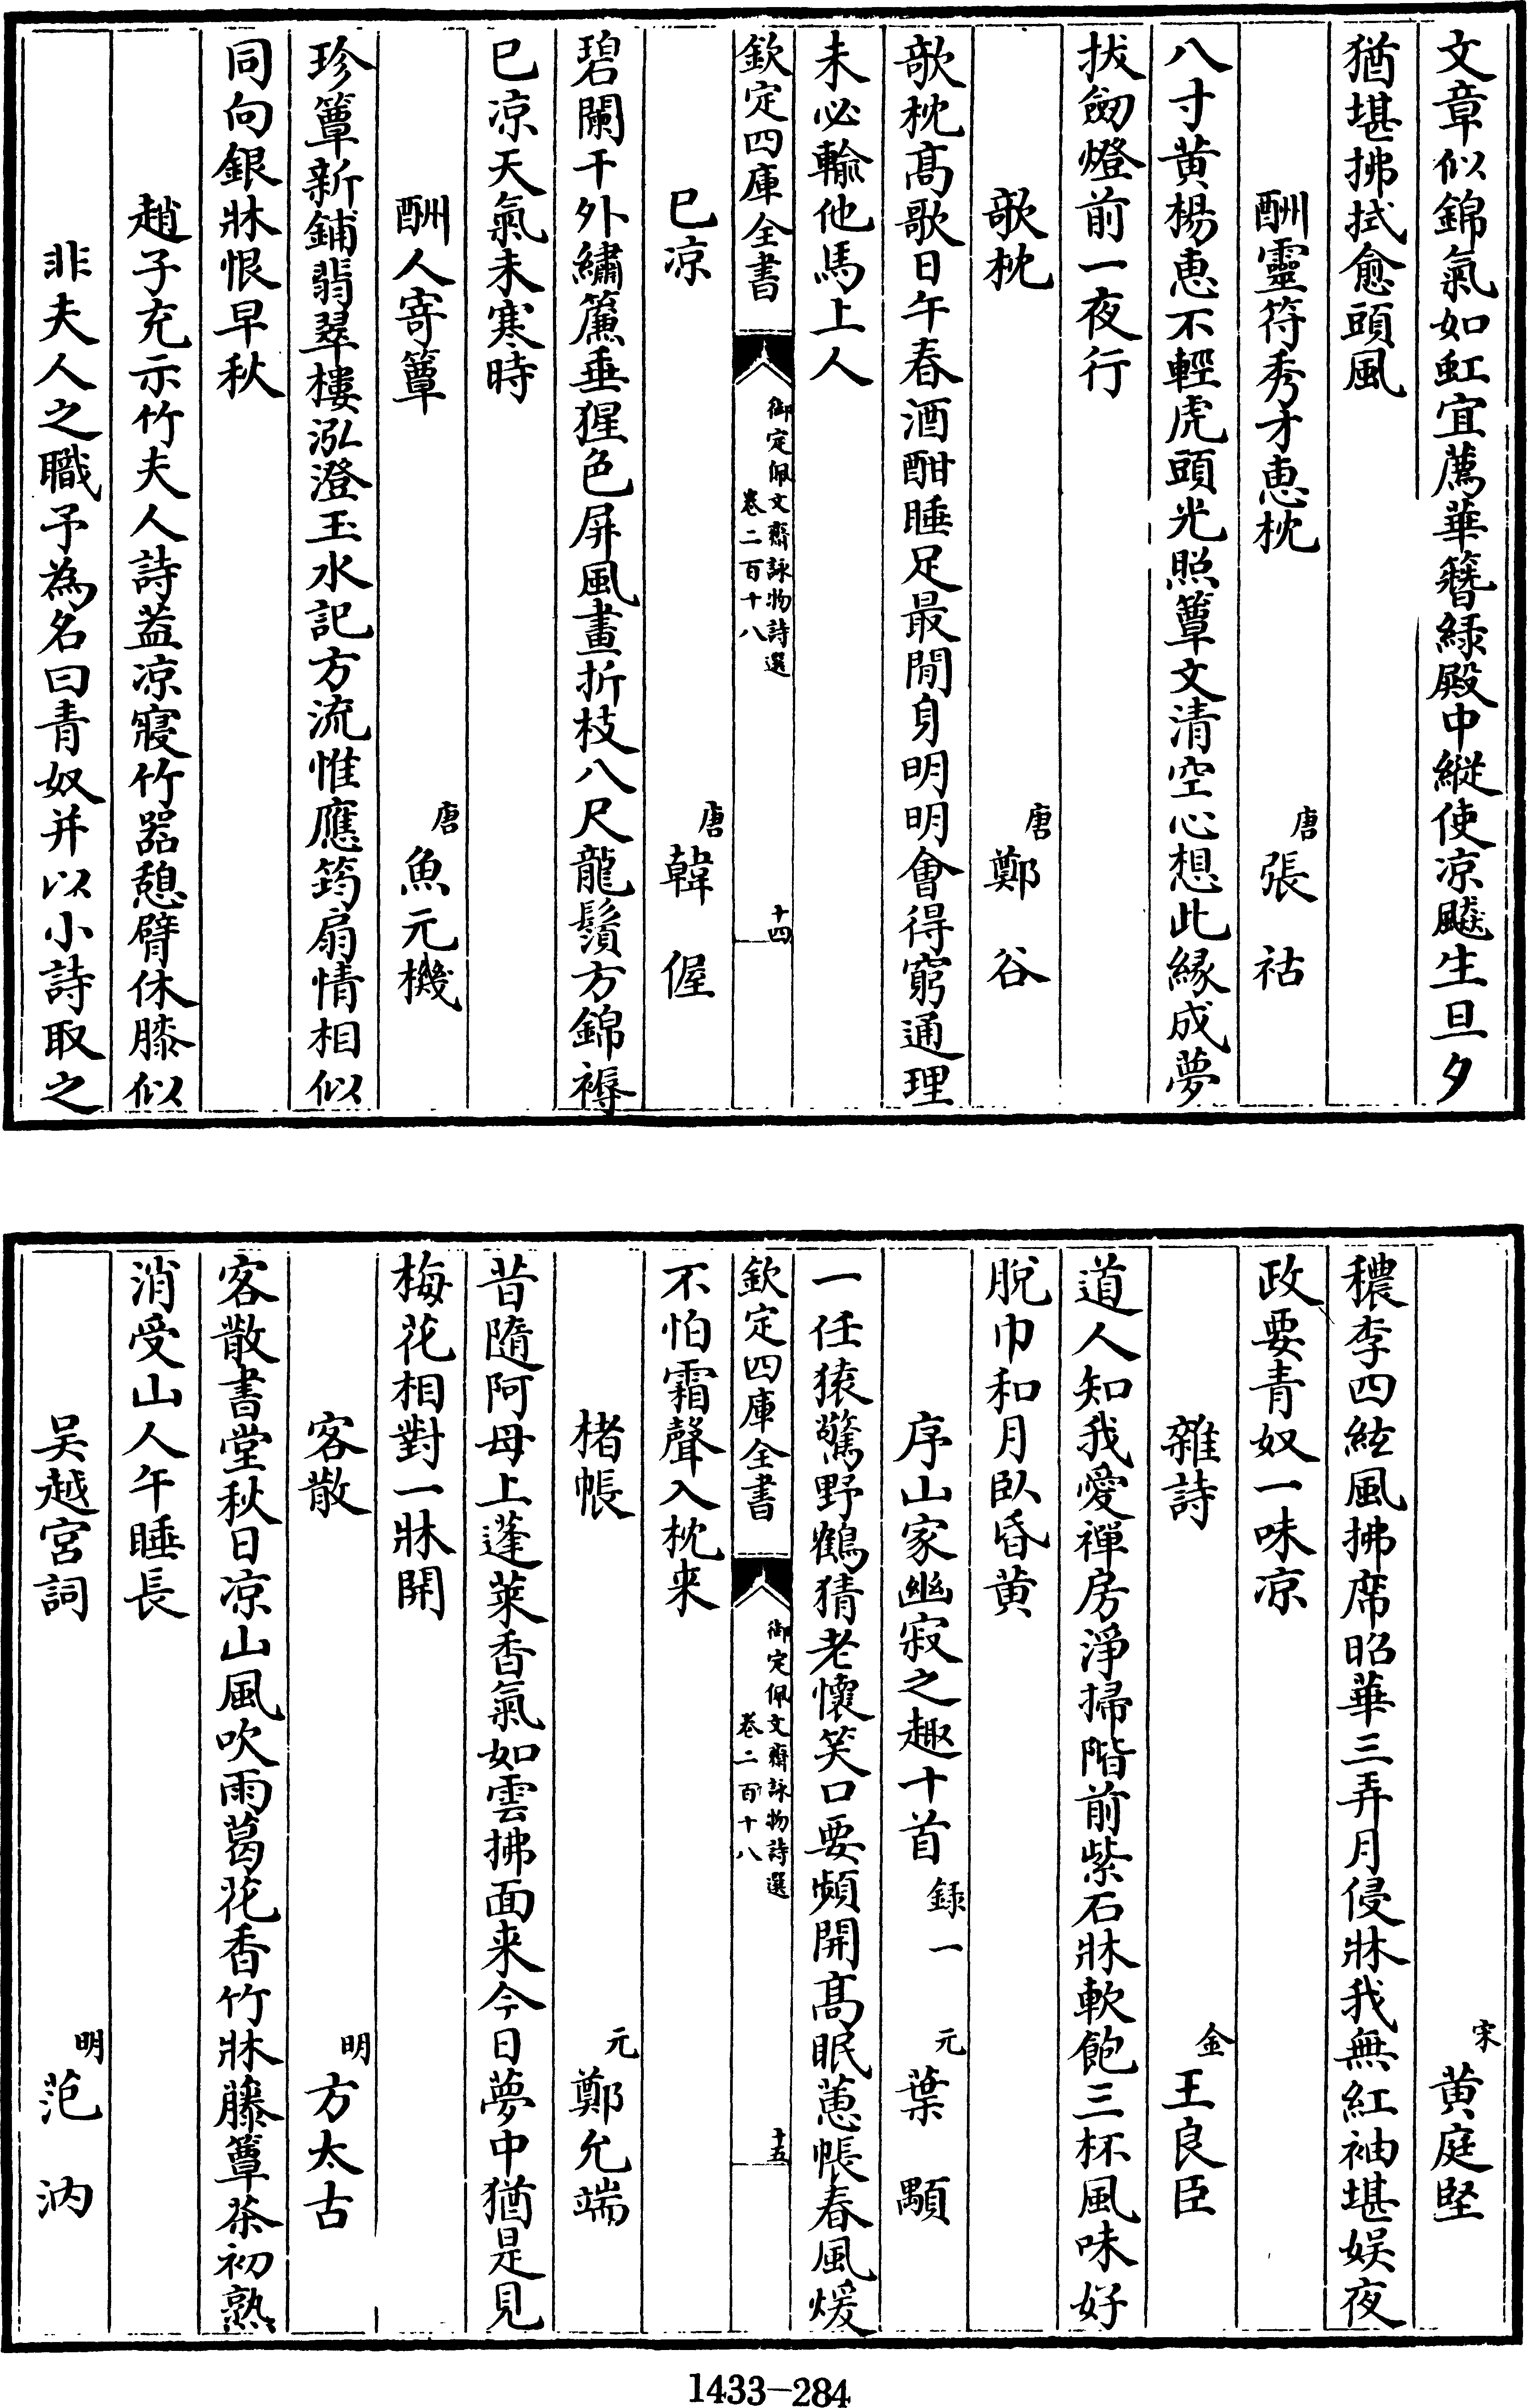 文章似錦氣如虹宜薦華簪緑殿中縱使凉飈生旦夕
猶堪拂拭愈頭風
酬靈符秀才恵枕
唐張祜
八寸黄楊恵不輕虎頭光照簟文清空心想此縁成夢
拔劒燈前一夜行
欹枕
唐鄭谷
欹枕髙歌日午春酒酣睡足最閒身明明會得窮通理
未必輸他馬上人
欽定四庫全書
御定佩文齋詠物詩選
卷二百十八
十四
已凉
唐韓偓
碧闌干外繡簾垂猩色屏風畫折枝八尺龍鬚方錦褥
已凉天氣未寒時
酬人寄簟
唐魚元機
珍簟新鋪翡翠樓泓澄玉水記方流惟應筠扇情相似
同向銀牀恨早秋
趙子充示竹夫人詩葢凉寢竹器憩臂休膝似
非夫人之職予為名曰青奴并以小詩取之
宋黄庭堅
穠李四絃風拂席昭華三弄月侵牀我無紅袖堪娱夜
政要青奴一味凉
雜詩
金王良臣
道人知我愛禪房淨掃階前紫石牀軟飽三杯風味好
脫巾和月臥昏黄
序山家幽寂之趣十首録一
元葉顒
一任猿驚野鶴猜老懷笑口要頻開髙眠蕙帳春風煖
欽定四庫全書
御定佩文齋詠物詩選
卷二百十八
十五
不怕霜聲入枕来
楮帳
元鄭允端
昔隨阿母上蓬萊香氣如雲拂面来今日夢中猶是見
梅花相對一牀開
客散
明方太古
客散書堂秋日凉山風吹雨葛花香竹牀藤簟茶初熟
消受山人午睡長
吴越宫詞
明范汭
1433-284